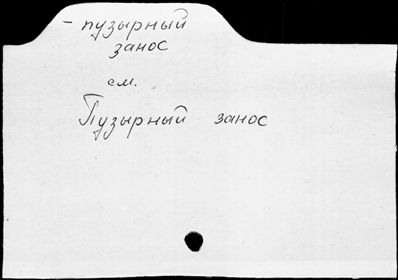 - пузырный
занос
см.
Пузырный занос